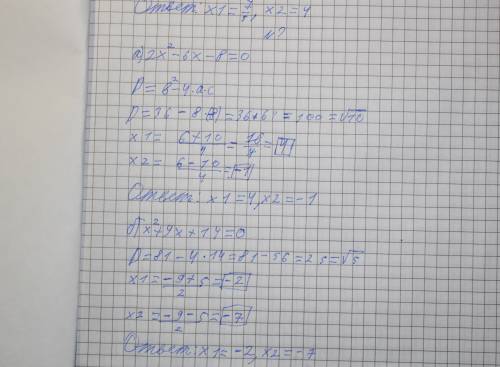 Ответ: x1 = 7/51, x2 = 4
N7
а) 2x² - 6x - 8 = 0
D = в² - 4·ac
D = 36 - 8·(-8) = 36 + 64 = 100 = √10
x1 = (6+10)/4 = 16/4 = 4
x2 = (6-10)/4 = -1
Ответ: x1 = 4, x2 = -1
б) x² + 9x + 14 = 0
D = 81 - 4·14 = 81 - 56 = 25 = √5
x1 = (-9+5)/2 = -2
x2 = (-9-5)/2 = -7
Ответ: x1 = -2, x2 = -7